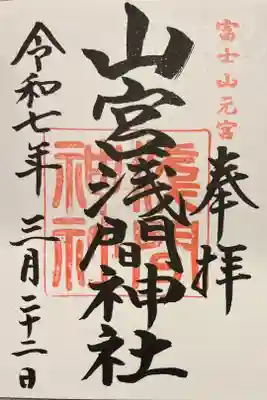 富士山元宮
奉拝
山宮浅間神社
令和七年 三月二十二日